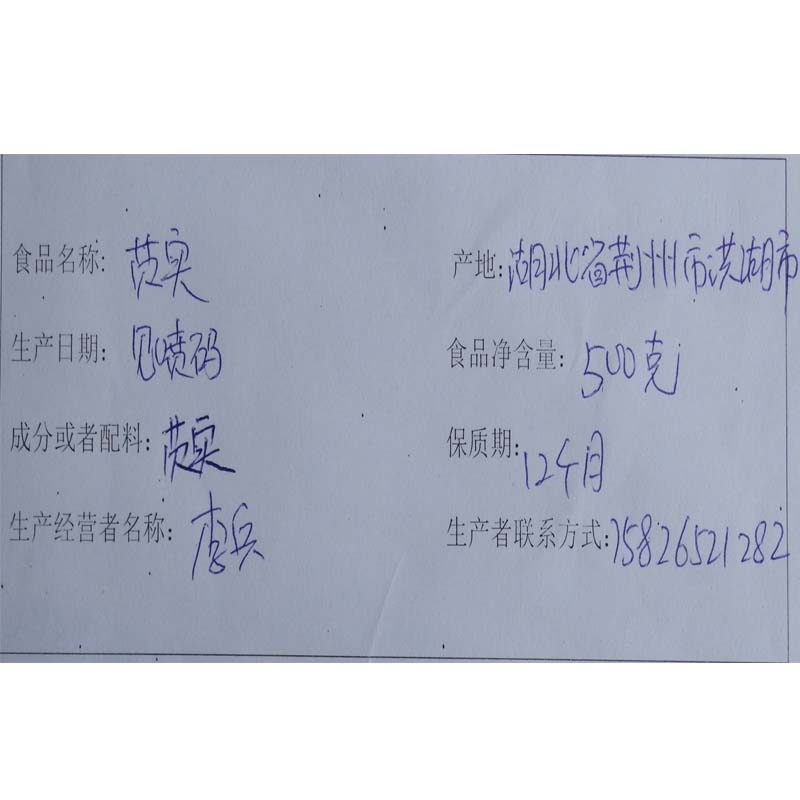 食品名称: 芡实
产地: 湖北省荆州市洪湖市
生产日期: 见喷码
食品净含量: 500克
成分或者配料: 芡实
保质期: 12个月
生产经营者名称: 李兵
生产者联系方式: 15826521282